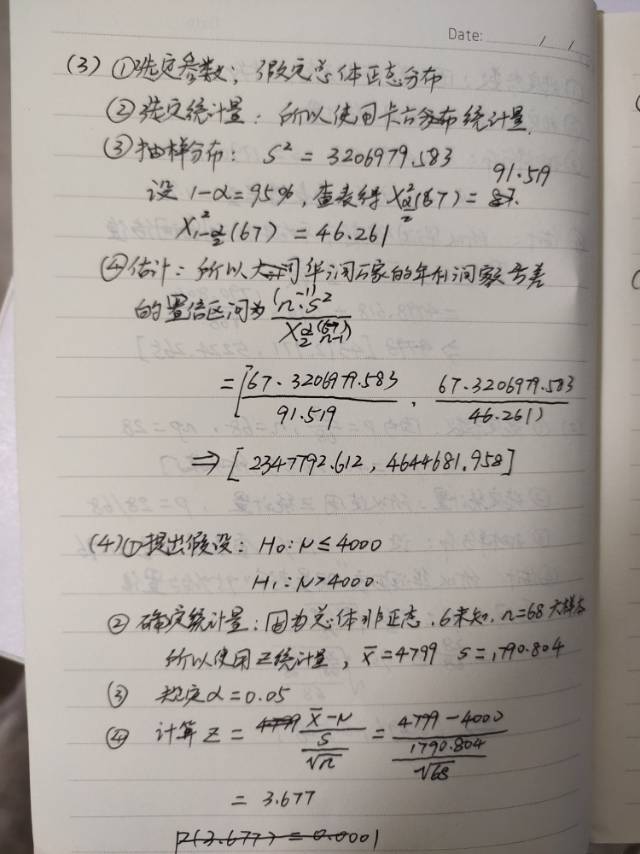 Date: / /
(3) ①选定参数：假定总体正态分布
②选定统计量：所以使用卡方分布统计量.
③抽样分布：S² = 3206979.583
91.519
设 1-α=95%，查表得 X²α/2(67) = 87.
X²1-α/2(67) = 46.261
④估计：所以大同华润万家的年利润额方差
的置信区间为 (n-1)·S² / X²α/2(n-1)
= [67·3206979.583 / 91.519 , 67·3206979.583 / 46.261)
⇒ [2347792.612, 4644681.958]
(4) ①提出假设：H₀: μ ≤ 4000
H₁: μ > 4000
② 确定统计量：因为总体非正态，σ未知，n=68 大样本
所以使用Z统计量，x̄=4799 S=1790.804
③ 规定α=0.05
④ 计算 Z = 4799 (x̄-μ) / (S/√n) = (4799-4000) / (1790.804/√68)
= 3.677
P(3.677) = 0.0001